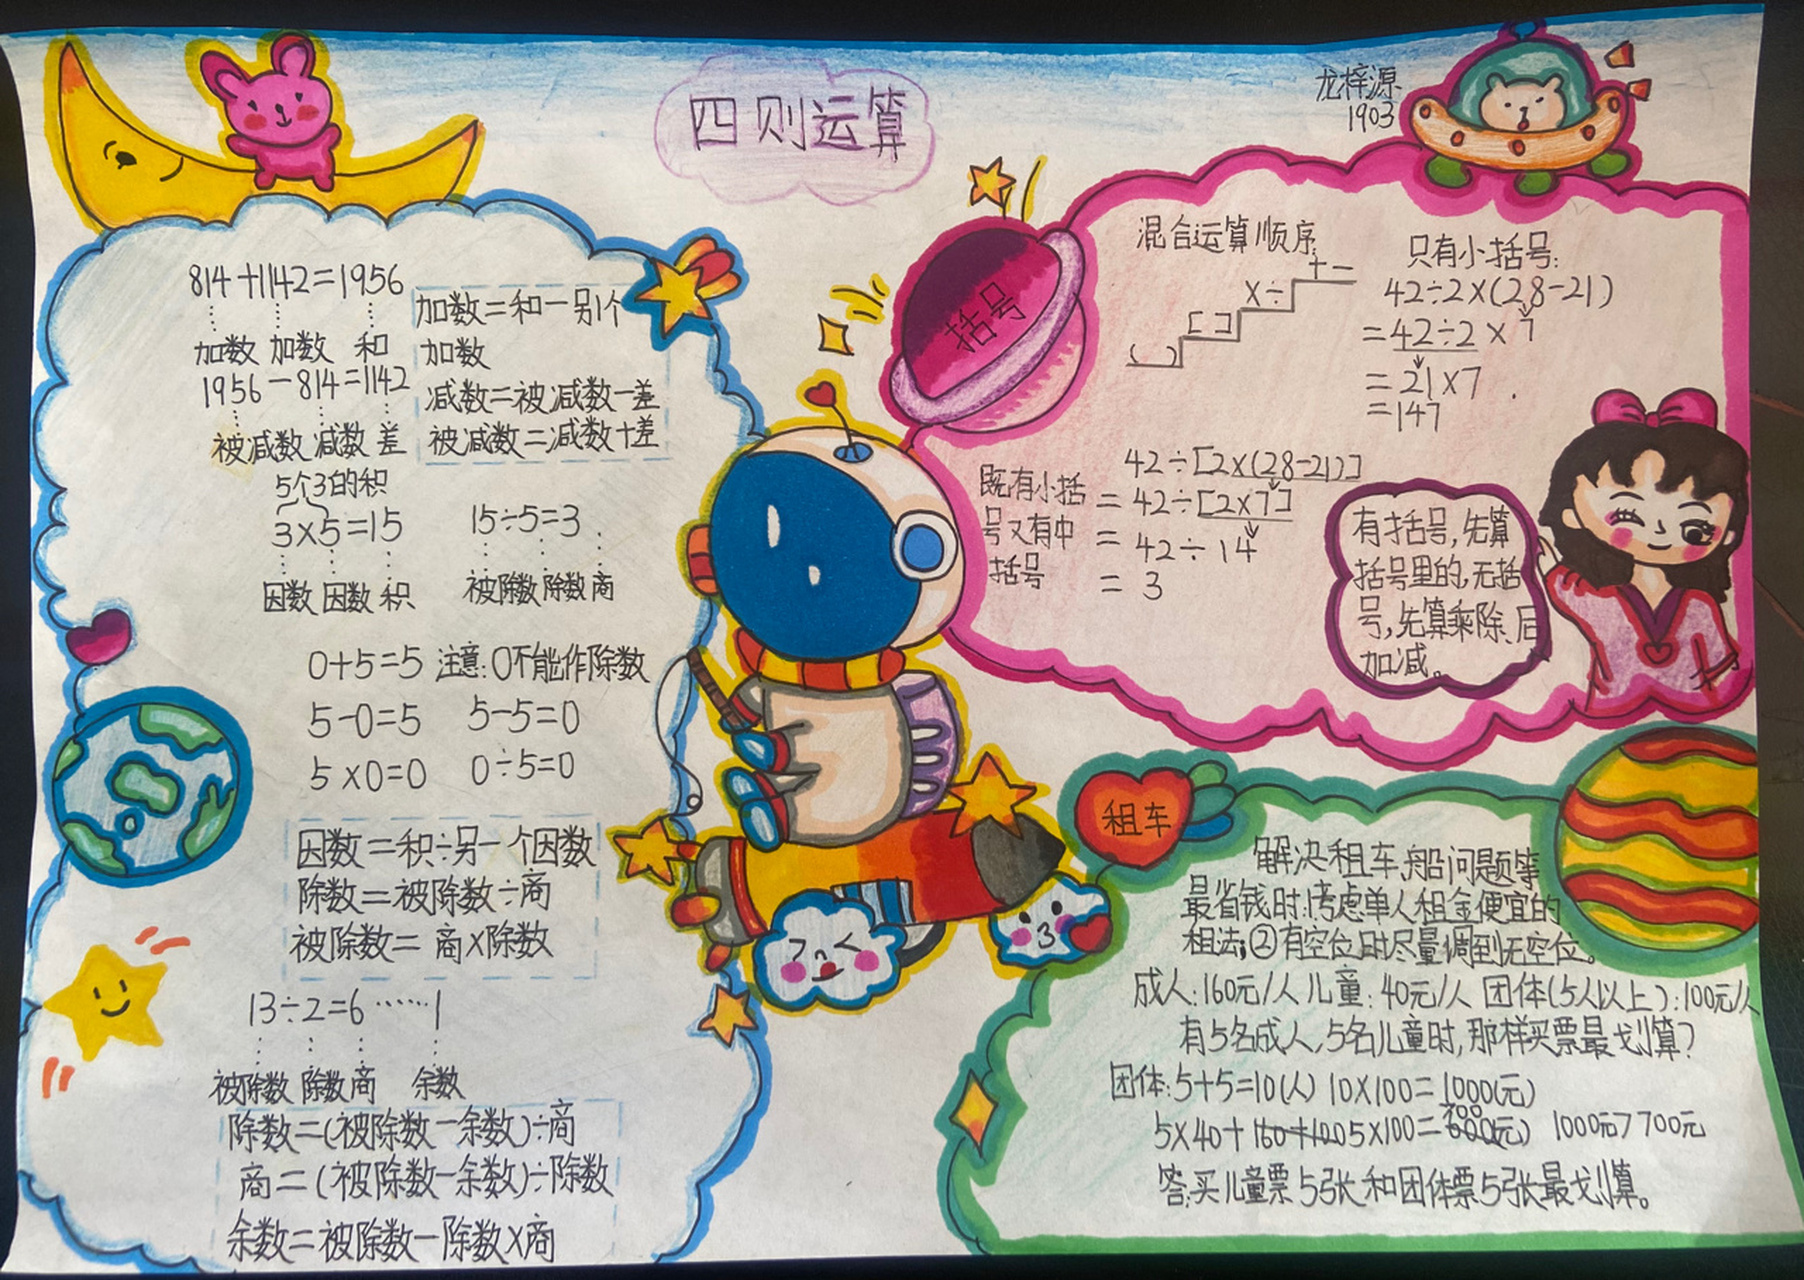 四则运算
龙梓源
1903
814+1142=1956
加数 加数 和
1956-814=1142
被减数 减数 差
加数=和-另1个
加数
减数=被减数-差
被减数=减数+差
5个3的积
3×5=15
因数 因数 积
15÷5=3
被除数 除数 商
0+5=5 注意:0不能作除数
5-0=5 5-5=0
5×0=0 0÷5=0
因数=积÷另一个因数
除数=被除数÷商
被除数=商×除数
13÷2=6……1
被除数 除数 商 余数
除数=(被除数-余数)÷商
商=(被除数-余数)÷除数
余数=被除数-除数×商
括号
混合运算顺序
+-
×÷
[ ]
( )
只有小括号:
42÷2×(28-21)
=42÷2×7
=21×7
=147
既有小括
号又有中
括号
42÷[2×(28-21)]
=42÷[2×7]
=42÷14
=3
有括号,先算
括号里的,无括
号,先算乘除、后
加减。
租车
解决租车,船问题等
最省钱时:①考虑单人租金便宜的
租法;②有空位时尽量调到无空位。
成人:160元/人 儿童:40元/人 团体(5人以上):100元/人
有5名成人,5名儿童时,那样买票最划算?
团体:5+5=10(人) 10×100=1000(元)
700
5×40+160+1205×100=600(元) 1000元>700元
答:买儿童票5张和团体票5张最划算。